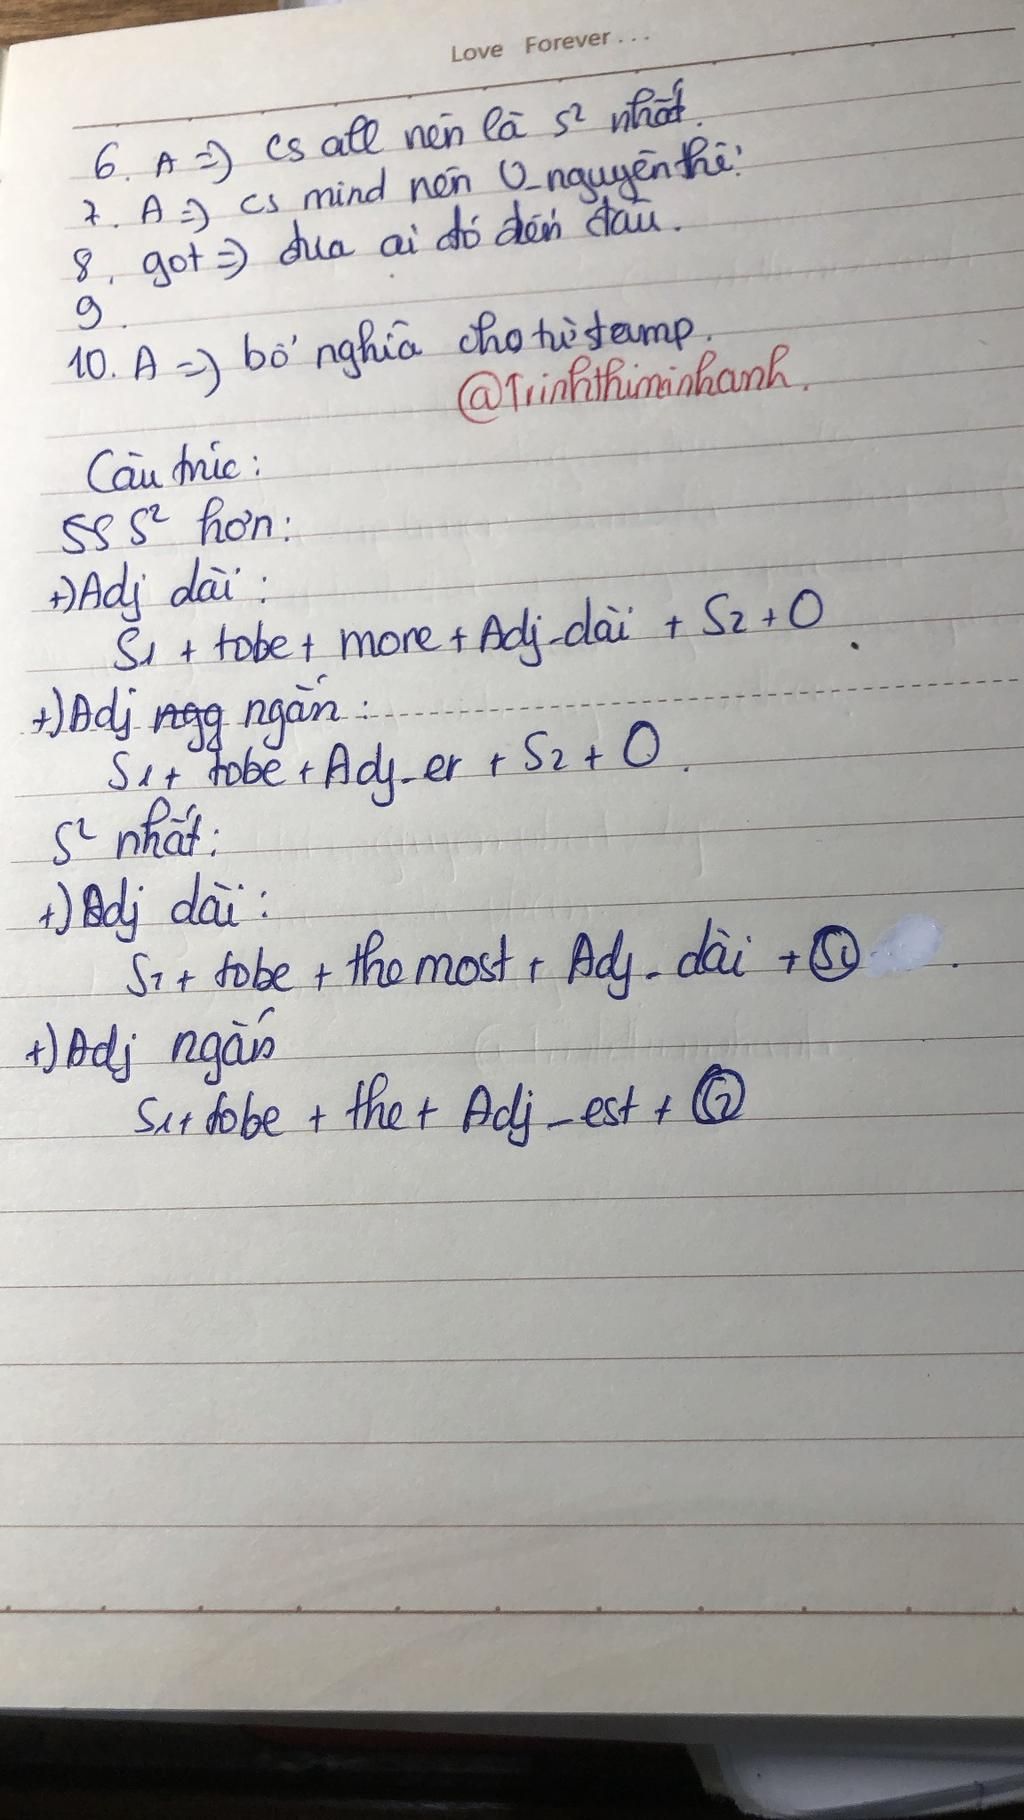 Love Forever...
6. A => cs all nên là s² nhất.
7. A => cs mind nên V_nguyên thể.
8. got => đưa ai đó đến đâu.
9.
10. A => bổ nghĩa cho từ stamp.
@Trinhthiminhanh.
Cấu trúc:
SS S² hơn:
+) Adj dài:
S1 + tobe + more + Adj_dài + S2 + O.
+) Adj ngắn:
S1 + tobe + Adj_er + S2 + O.
S² nhất:
+) Adj dài:
S1 + tobe + the most + Adj_dài +
+) Adj ngắn
S1 + tobe + the + Adj_est +